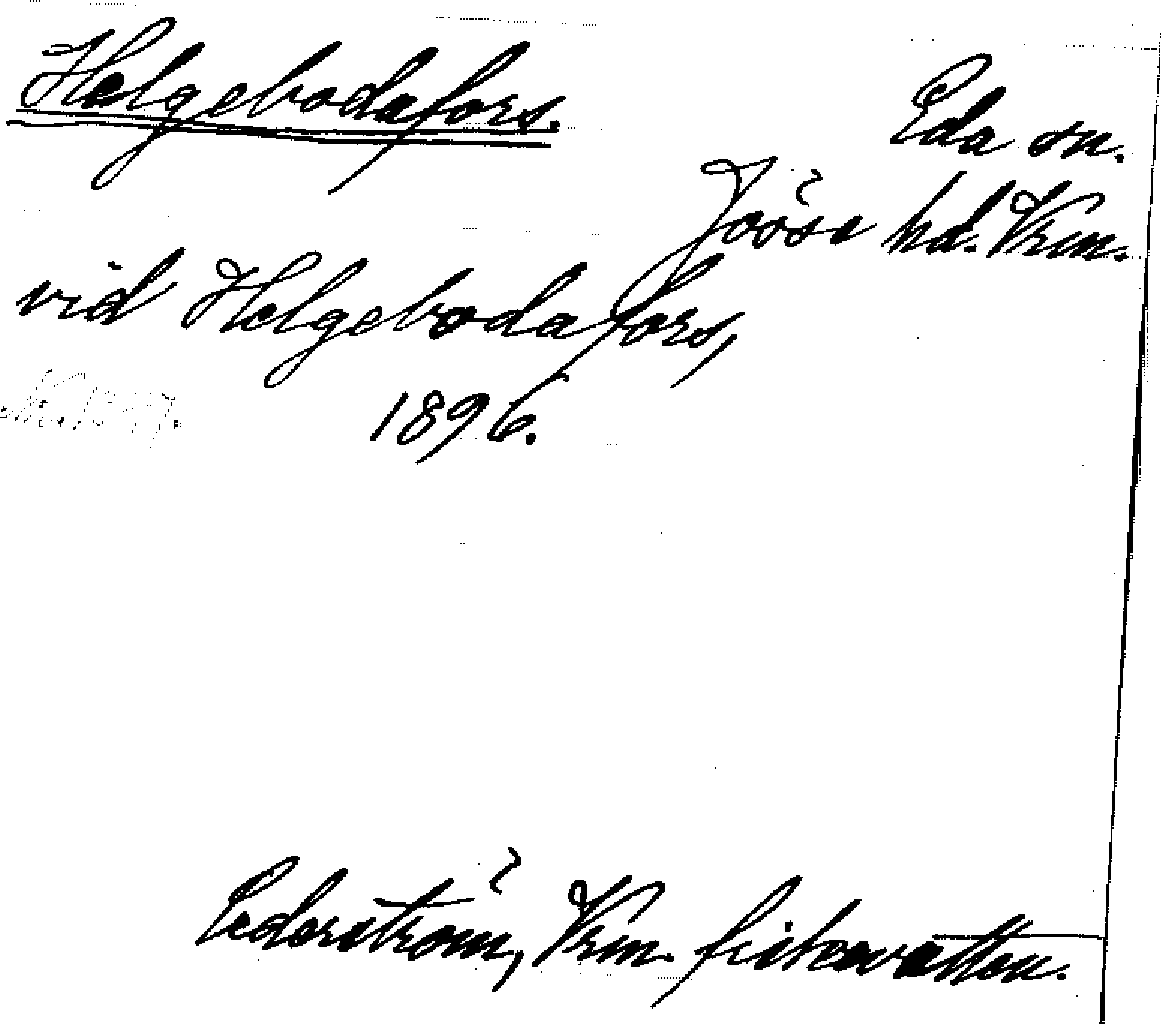 Helgebodafors.
Eda sn.
Jösse hd. Vrm.
vid Helgebodafors,
1896.
Cederström, Vrm. fiskevatten.